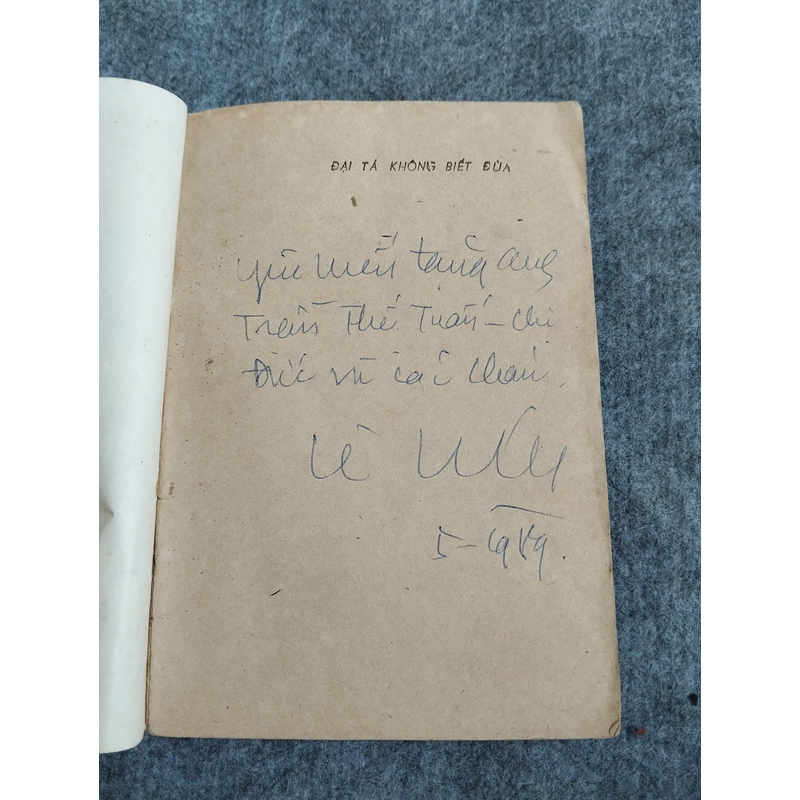 ĐẠI TÁ KHÔNG BIẾT ĐÙA
Yêu mến tặng ông
Trần Thế Tuấn - chị
Đức và các cháu.
Lê Lựu
5-1989.